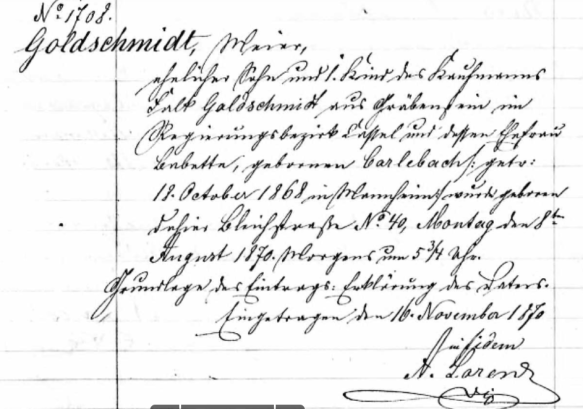 No. 1708.
Goldschmidt, Meier,
ehelicher Sohn und 1. Kind des Kaufmanns
Falk Goldschmidt aus Grebenstein im
Regierungsbezirk Cassel und dessen Ehefrau
Babette, geborenen Carlebach /: getr:
18. October 1868 in Mannheim :/ wurde geboren
dahier Bleichstraße No. 40, Montag den 8ten
August 1870. Morgens um 5 3/4 Uhr.
Grundlage des Eintrags: Erklärung des Vaters.
Eingetragen den 16. November 1870
In fidem
Lorenz